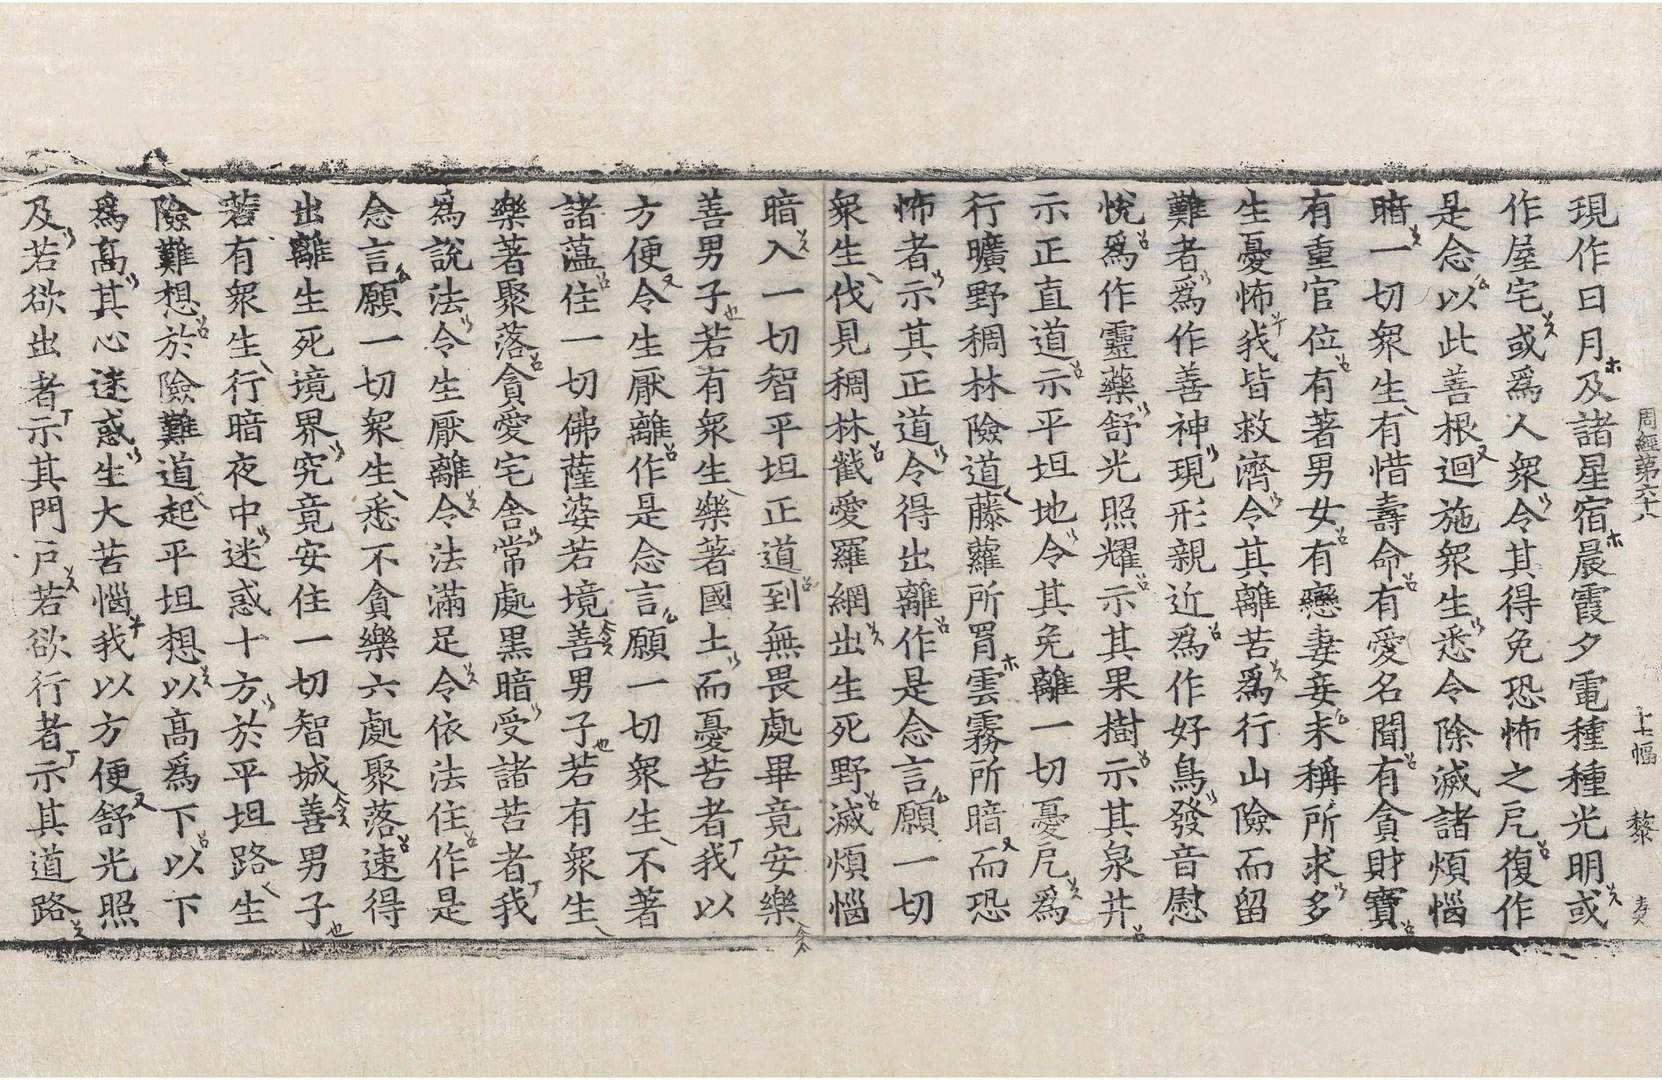 周經第六十八 幅 黎
現作日月及諸星宿晨霞夕電種種光明或
作屋宅或爲人衆令其得免恐怖之戹復作
是念以此善根迴施衆生悉令除滅諸煩惱
暗一切衆生有惜壽命有愛名聞有貪財寶
有重官位有著男女有戀妻妾未稱所求多
生憂怖我皆救濟令其離苦爲行山險而留
難者爲作善神現形親近爲作好鳥發音慰
悅爲作靈藥舒光照耀示其果樹示其泉井
示正直道示平坦地令其免離一切憂戹爲
行曠野稠林險道藤蘿所罥雲霧所暗而恐
怖者示其正道令得出離作是念言願一切
衆生伐見稠林截愛羅網出生死野滅煩惱
暗入一切智平坦正道到無畏處畢竟安樂
善男子若有衆生樂著國土而憂苦者我以
方便令生厭離作是念言願一切衆生不著
諸薀住一切佛薩婆若境善男子若有衆生
樂著聚落貪愛宅舍常處黑暗受諸苦者我
爲說法令生厭離令法滿足令依法住作是
念言願一切衆生悉不貪樂六處聚落速得
出離生死境界究竟安住一切智城善男子
若有衆生行暗夜中迷惑十方於平坦路生
險難想於險難道起平坦想以高爲下以下
爲高其心迷惑生大苦惱我以方便舒光照
及若欲出者示其門戶若欲行者示其道路